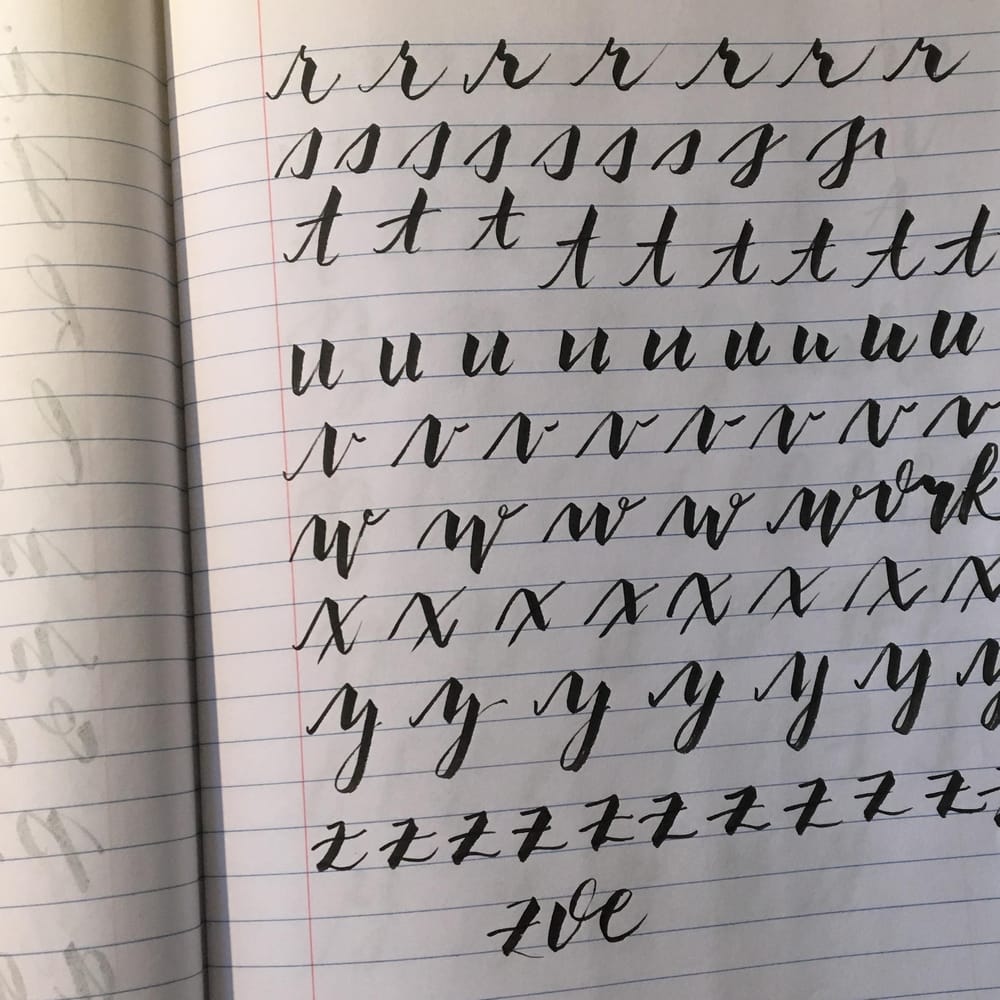 r r r r r r r
s s s s s s s s s
t t t t t t t t t
u u u u u u u u u
v v v v v v v v
w w w w work
x x x x x x x x
y y y y y y y
z z z z z z z z z z
zoe